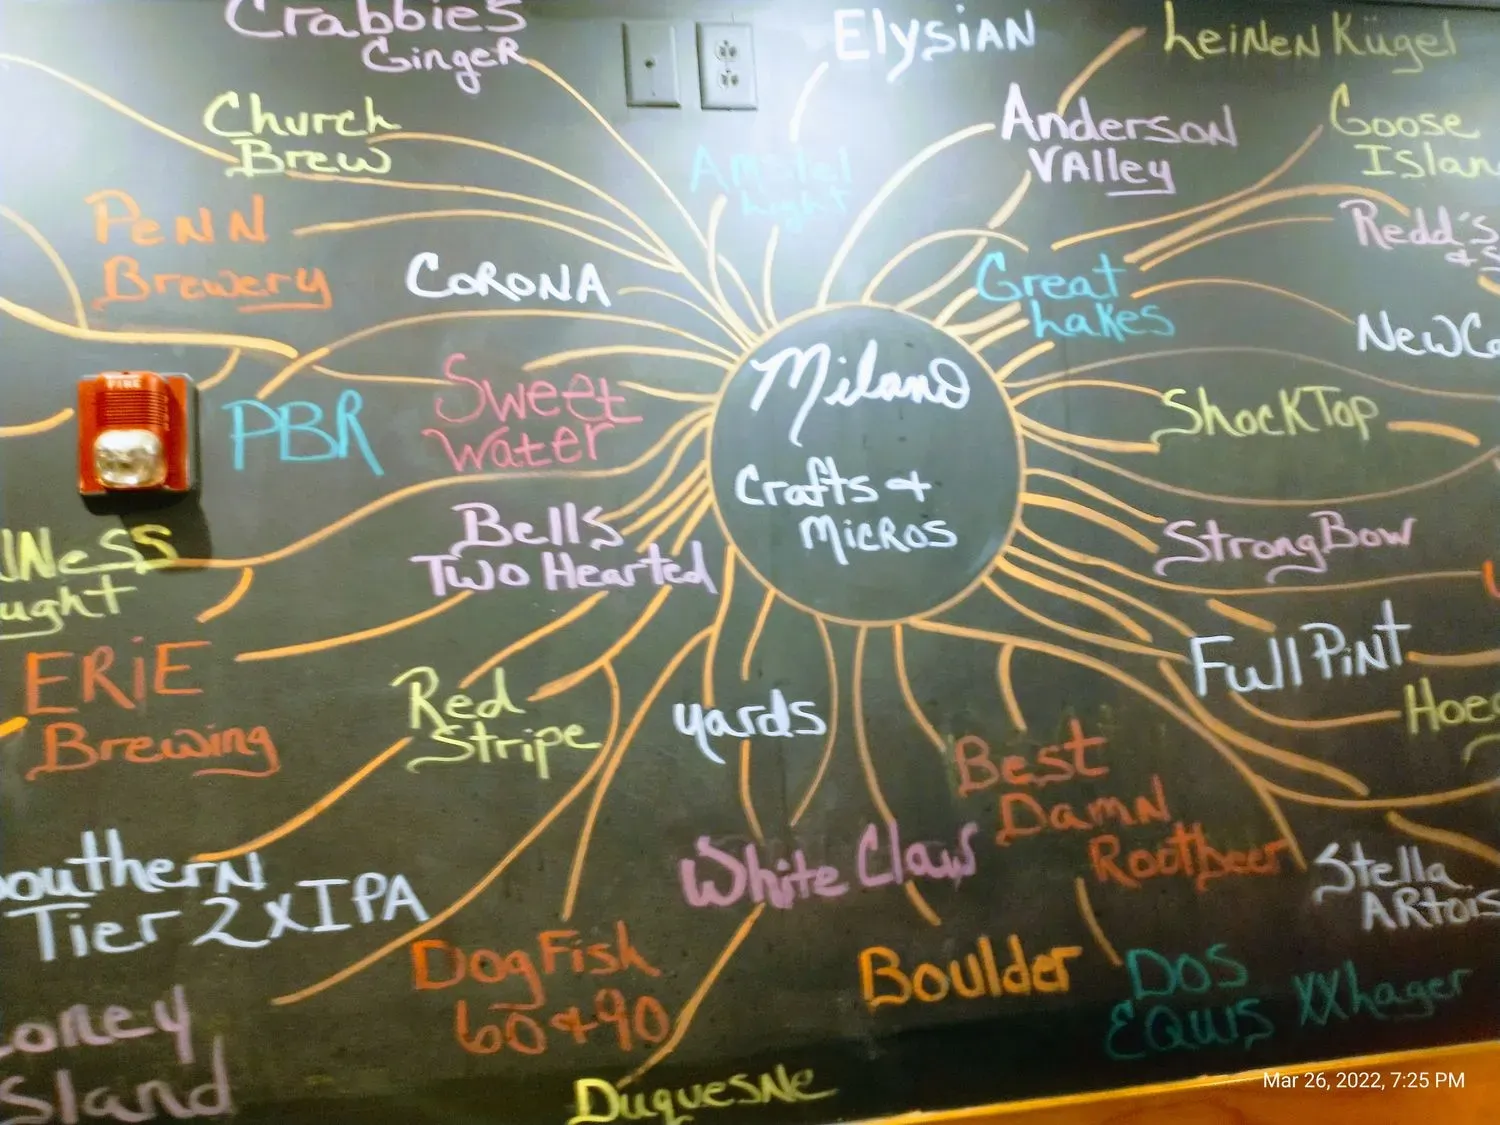 Crabbies
Ginger
Elysian
Leinenkügel
Church
Brew
Anderson
Valley
Goose
Islan
Amstel
Light
Penn
Brewery
Redd's
Corona
Great
Lakes
NewCa
Milano
Crafts +
Micros
PBR
Sweet
Water
ShockTop
FIRE
Bells
Two Hearted
StrongBow
iNess
ught
Full Pint
ERiE
Brewing
Red
Stripe
yards
Hoeg
Best
Damn
Rootbeer
White Claw
Stella
ARtois
Southern
Tier 2xIPA
DogFish
60 + 90
Boulder
DOS
EQUIS XX Lager
oney
Sland
DuquesNe
Mar 26, 2022, 7:25 PM